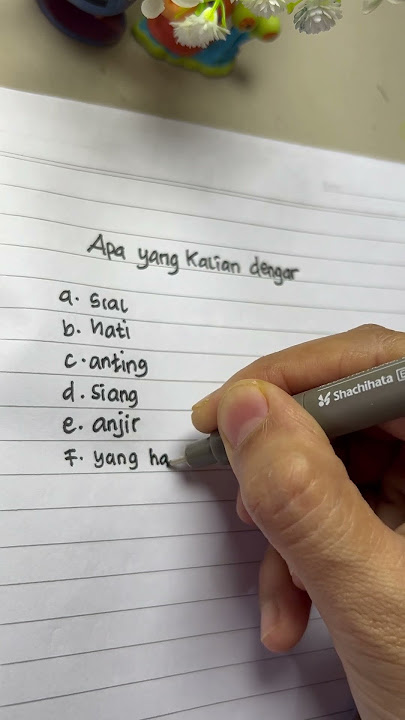 Apa yang Kalian dengar
a. sial
b. hati
c. anting
d. siang
e. anjir
f. yang ha
Shachihata